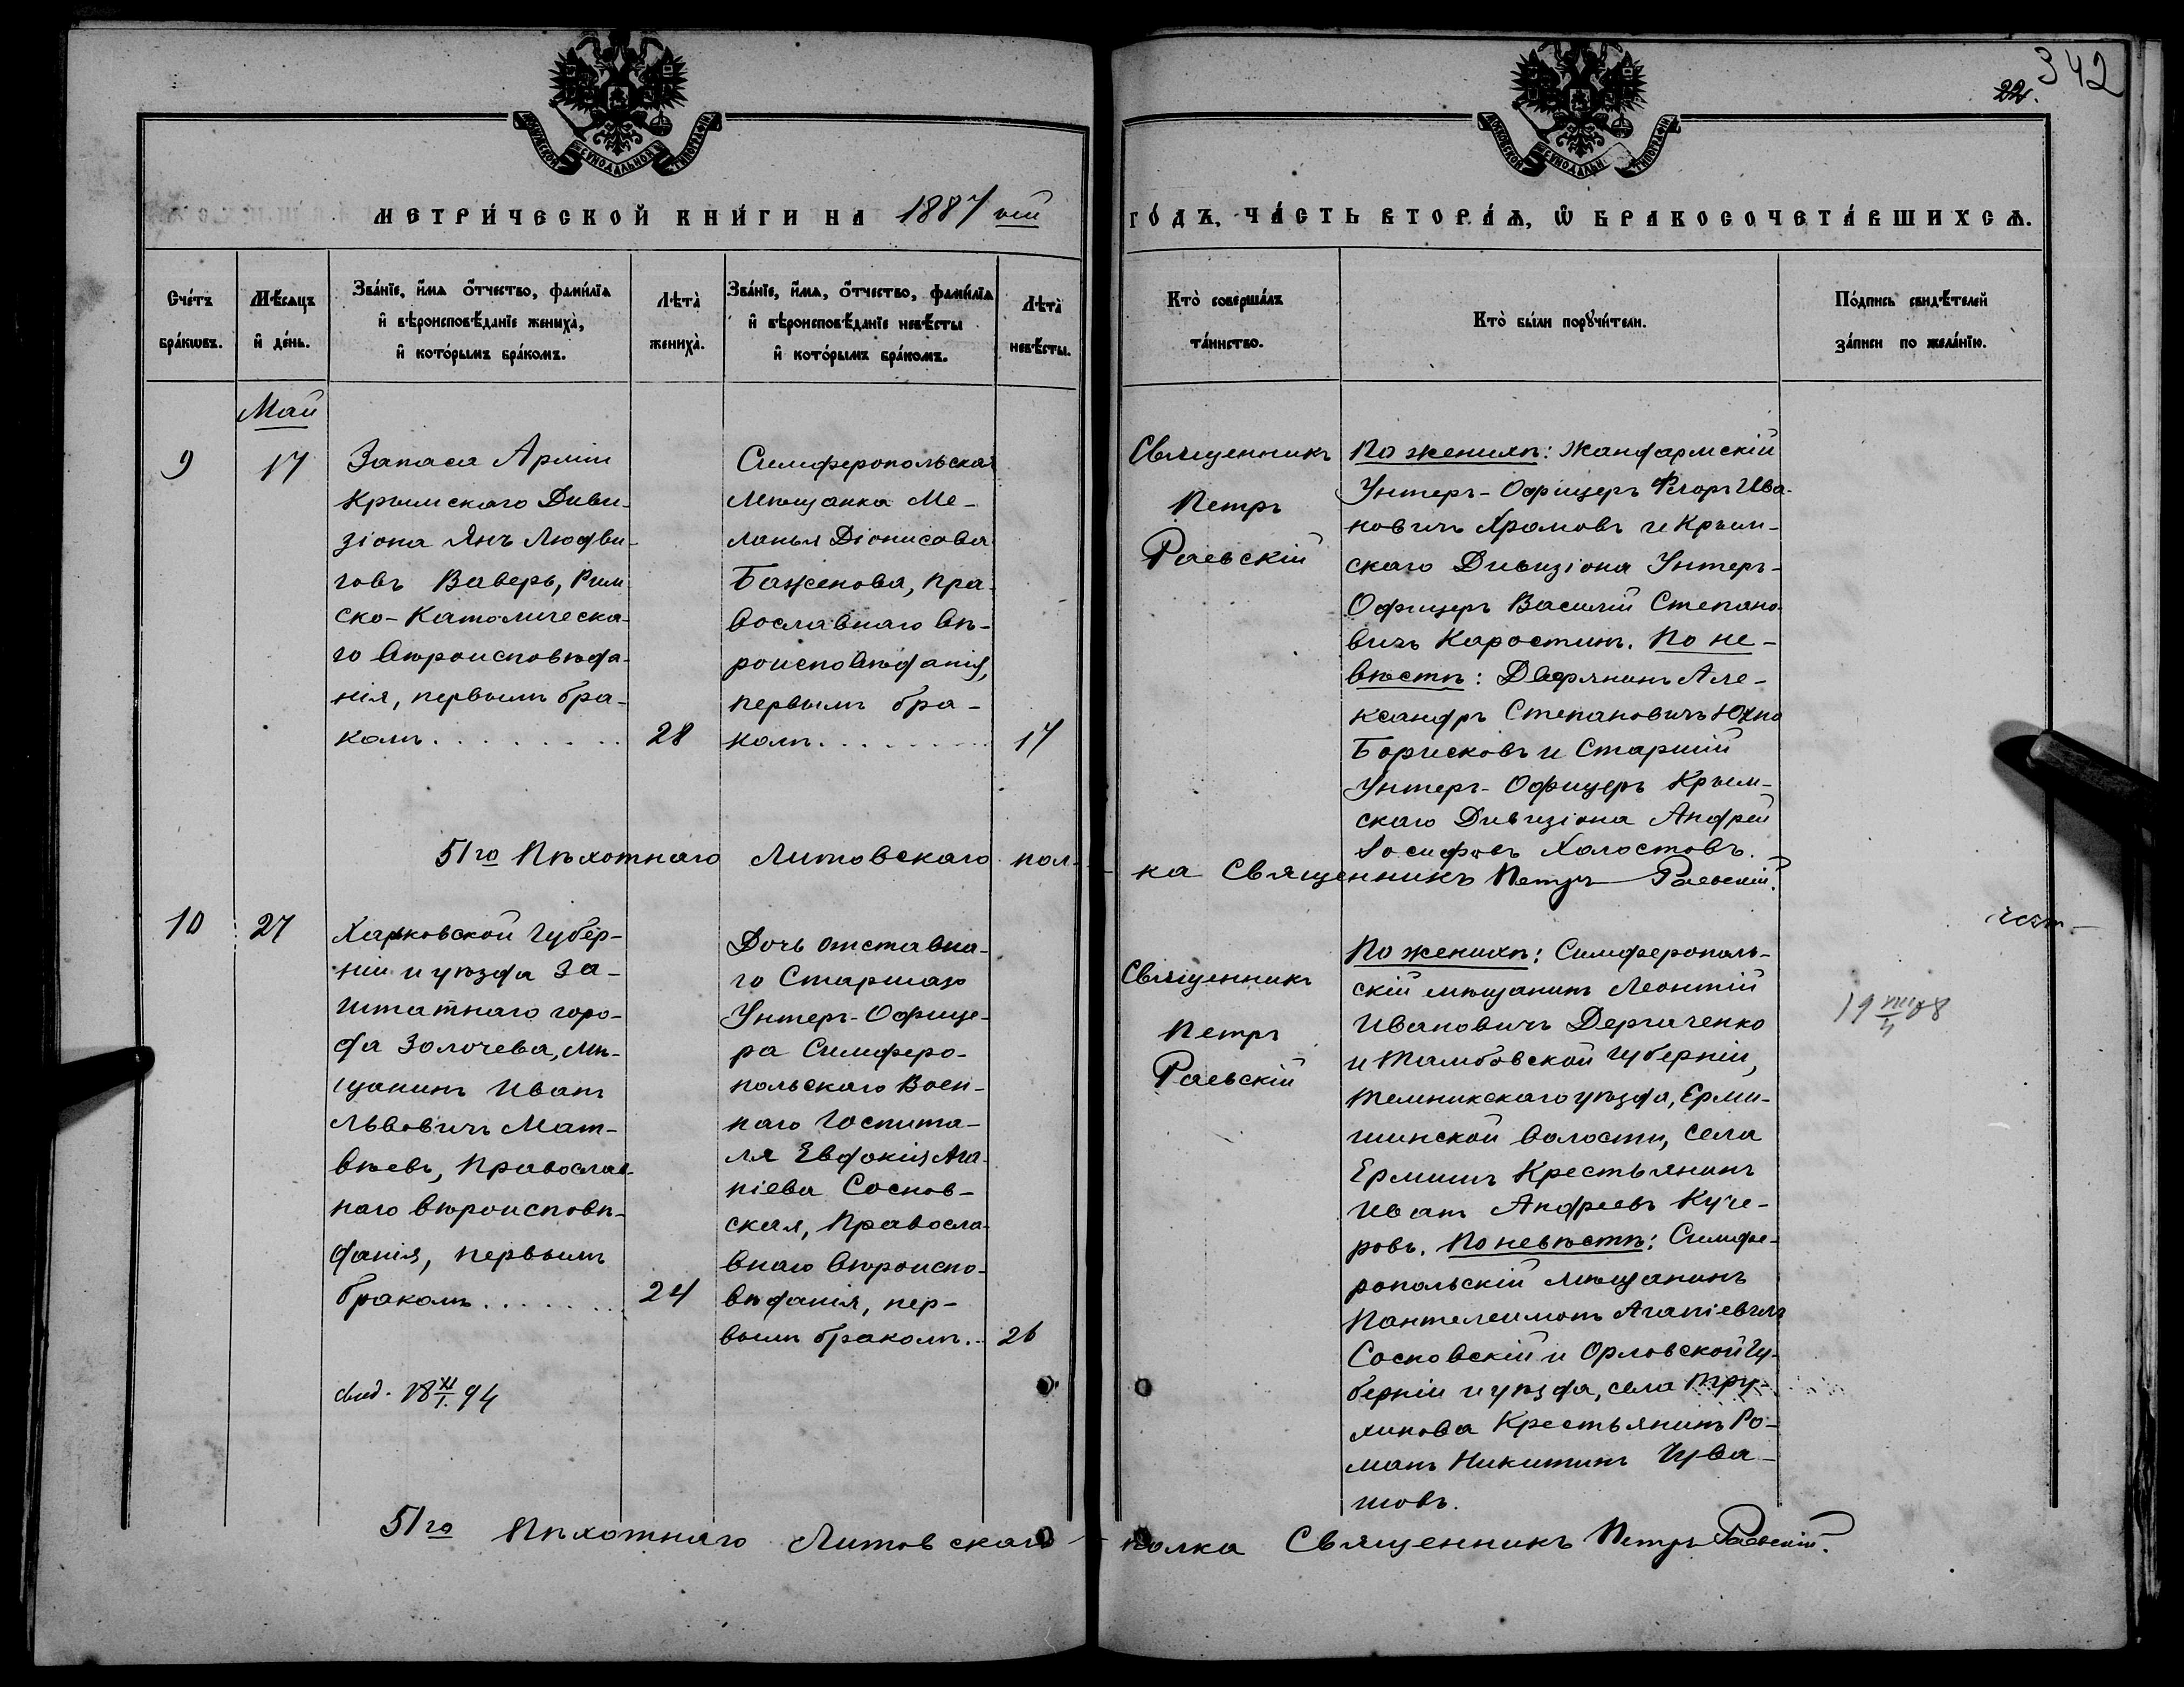 342
22.
МОСКОВСКОЙ СѴНОДАЛЬНОЙ ТИПОГРАФІИ
МОСКОВСКОЙ СѴНОДАЛЬН. ТИПОГРАФІИ
МЕТРИ́ЧЕСКОЙ КНИ́ГИ НА 1887 ой
ГО́ДЪ, ЧА́СТЬ ВТОРА́Ѧ, Ѡ҆ БРАКОСОЧЕТА́ВШИХСѦ.
Сче́тъ бра́кѡвъ.
Мѣ́сѧцъ и҆ де́нь.
Зва́нїе, и҆́мѧ, ѻ҆́тчество, фами́лїѧ
и҆ вѣроисповѣ́данїе жениха̀,
и҆ кото́рымъ бра́комъ.
Лѣта̀ жениха̀.
Зва́нїе, и҆́мѧ, ѻ҆́тчество, фами́лїѧ
и҆ вѣроисповѣ́данїе невѣ́сты
и҆ кото́рымъ бра́комъ.
Лѣта̀ невѣ́сты.
Кто̀ соверша́лъ
та́инство.
Кто̀ бы́ли порꙋчи́тели.
По́дпись свидѣ́телей
за́писи по жела́нїю.
Май
9
17
Запаса Арміи
Крымскаго Диви-
зіона Янъ Людви-
говъ Ваверъ, Рим
ско-Католическа-
го вѣроисповѣда-
нія, первымъ бра-
комъ.........
28
Симферопольская
Мѣщанка Ме-
ланья Діонисова
Баженова, пра-
вославнаго вѣ-
роисповѣданія,
первымъ бра-
комъ.........
17
Священникъ
Петръ
Раевскій
По женихѣ: Жандармскій
Унтеръ-Офицеръ Ѳедоръ Ива-
новичъ Храмовъ и Крым-
скаго Дивизіона Унтеръ-
Офицеръ Василій Степано-
вичъ Каростинъ. По не-
вѣстѣ: Дворянинъ Але-
ксандръ Степановичъ Юхно
Борисковъ и Старшій
Унтеръ-Офицеръ Крым-
скаго Дивизіона Андрей
Іосифовъ Холостовъ.
51го Пѣхотнаго Литовскаго пол-
ка Священникъ Петръ Раевскій.
10
27
Харьковской Губер-
ніи и уѣзда За-
штатнаго горо-
да Золочева, мѣ-
щанинъ Иванъ
Львовичъ Мат-
вѣевъ, Православ-
наго вѣроисповѣ-
данія, первымъ
бракомъ........
24
Дочь отставна-
го Старшаго
Унтеръ-Офице-
ра Симферо-
польскаго Воен-
наго Госпита-
ля Евдокія Ага-
піева Соснов-
ская, Правосла-
внаго вѣроиспо-
вѣданія, пер-
вымъ бракомъ..
26
Священникъ
Петръ
Раевскій
По женихѣ: Симферополь-
скій мѣщанинъ Леонтій
Ивановичъ Дергаченко
и Тамбовской Губерніи,
Темникскаго уѣзда, Ерми-
шинской волости, села
Ермишъ Крестьянинъ
Иванъ Андреевъ Куче-
ровъ. По невѣстѣ: Симфе-
ропольскій мѣщанинъ
Пантелеимонъ Агапіевичъ
Сосновскій и Орловской Гу-
берніи и уѣзда, села Тру-
хинова Крестьянинъ Ро-
манъ Никитинъ Чува-
шовъ.
19 VIII/4 08
свид. 18 XI/I 94
51го Пѣхотнаго Литовскаго полка Священникъ Петръ Раевскій.